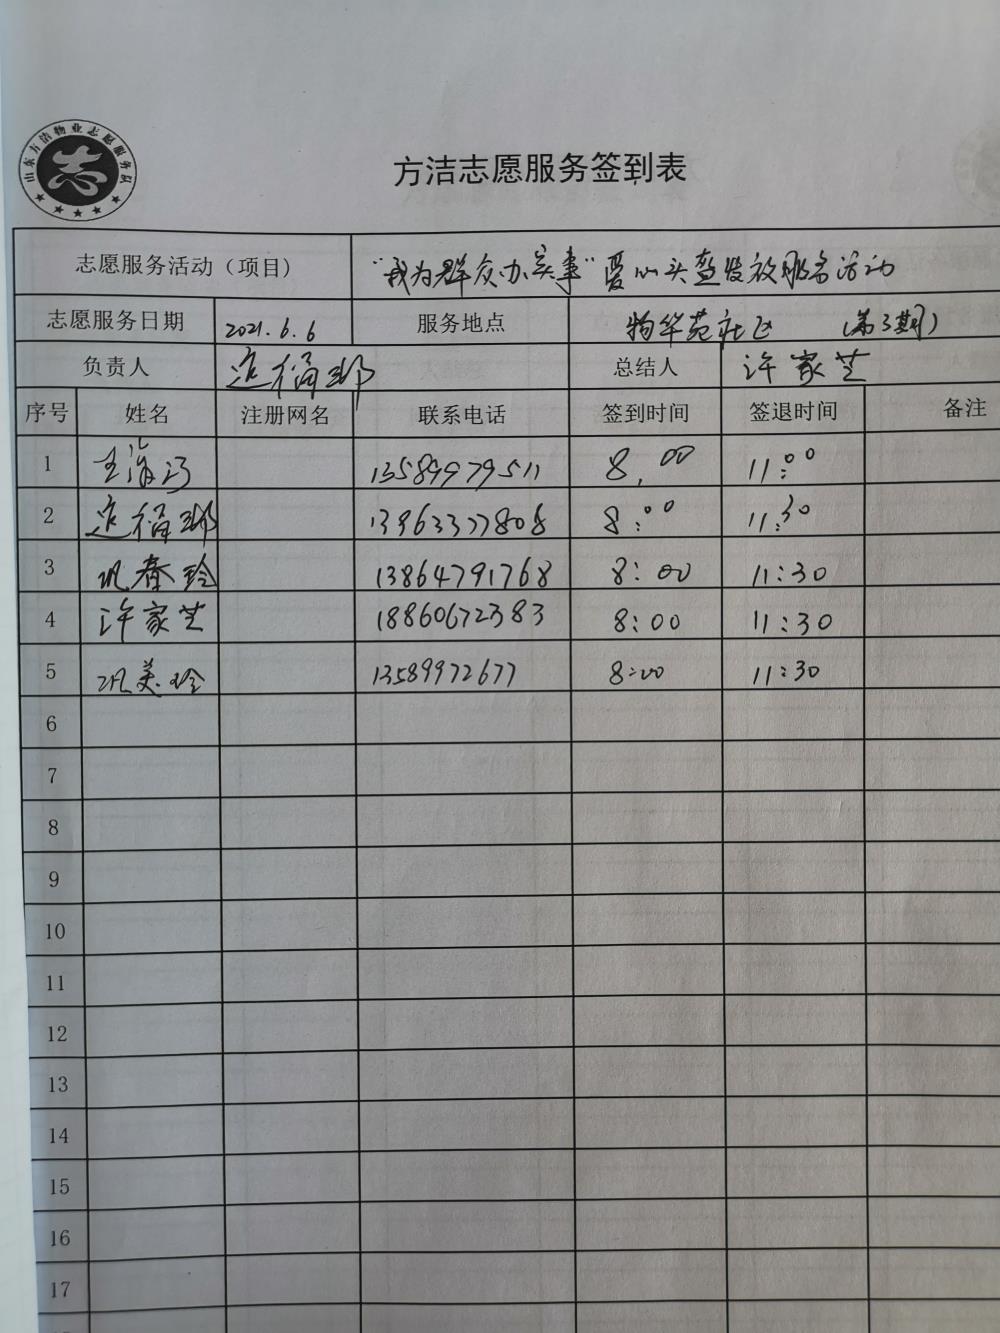 山东方洁物业志愿服务队
志
方洁志愿服务签到表
志愿服务活动（项目） “我为群众办实事”爱心头盔发放服务活动
志愿服务日期 2021.6.6 服务地点 物华苑社区 （第3期）
负责人 总结人 许家芝
序号 姓名 注册网名 联系电话 签到时间 签退时间 备注
1 13589979511 8:00 11:00
2 13963377808 8:00 11:30
3 巩春玲 13864791768 8:00 11:30
4 许家芝 18860672383 8:00 11:30
5 巩美玲 13589972677 8:00 11:30
6
7
8
9
10
11
12
13
14
15
16
17